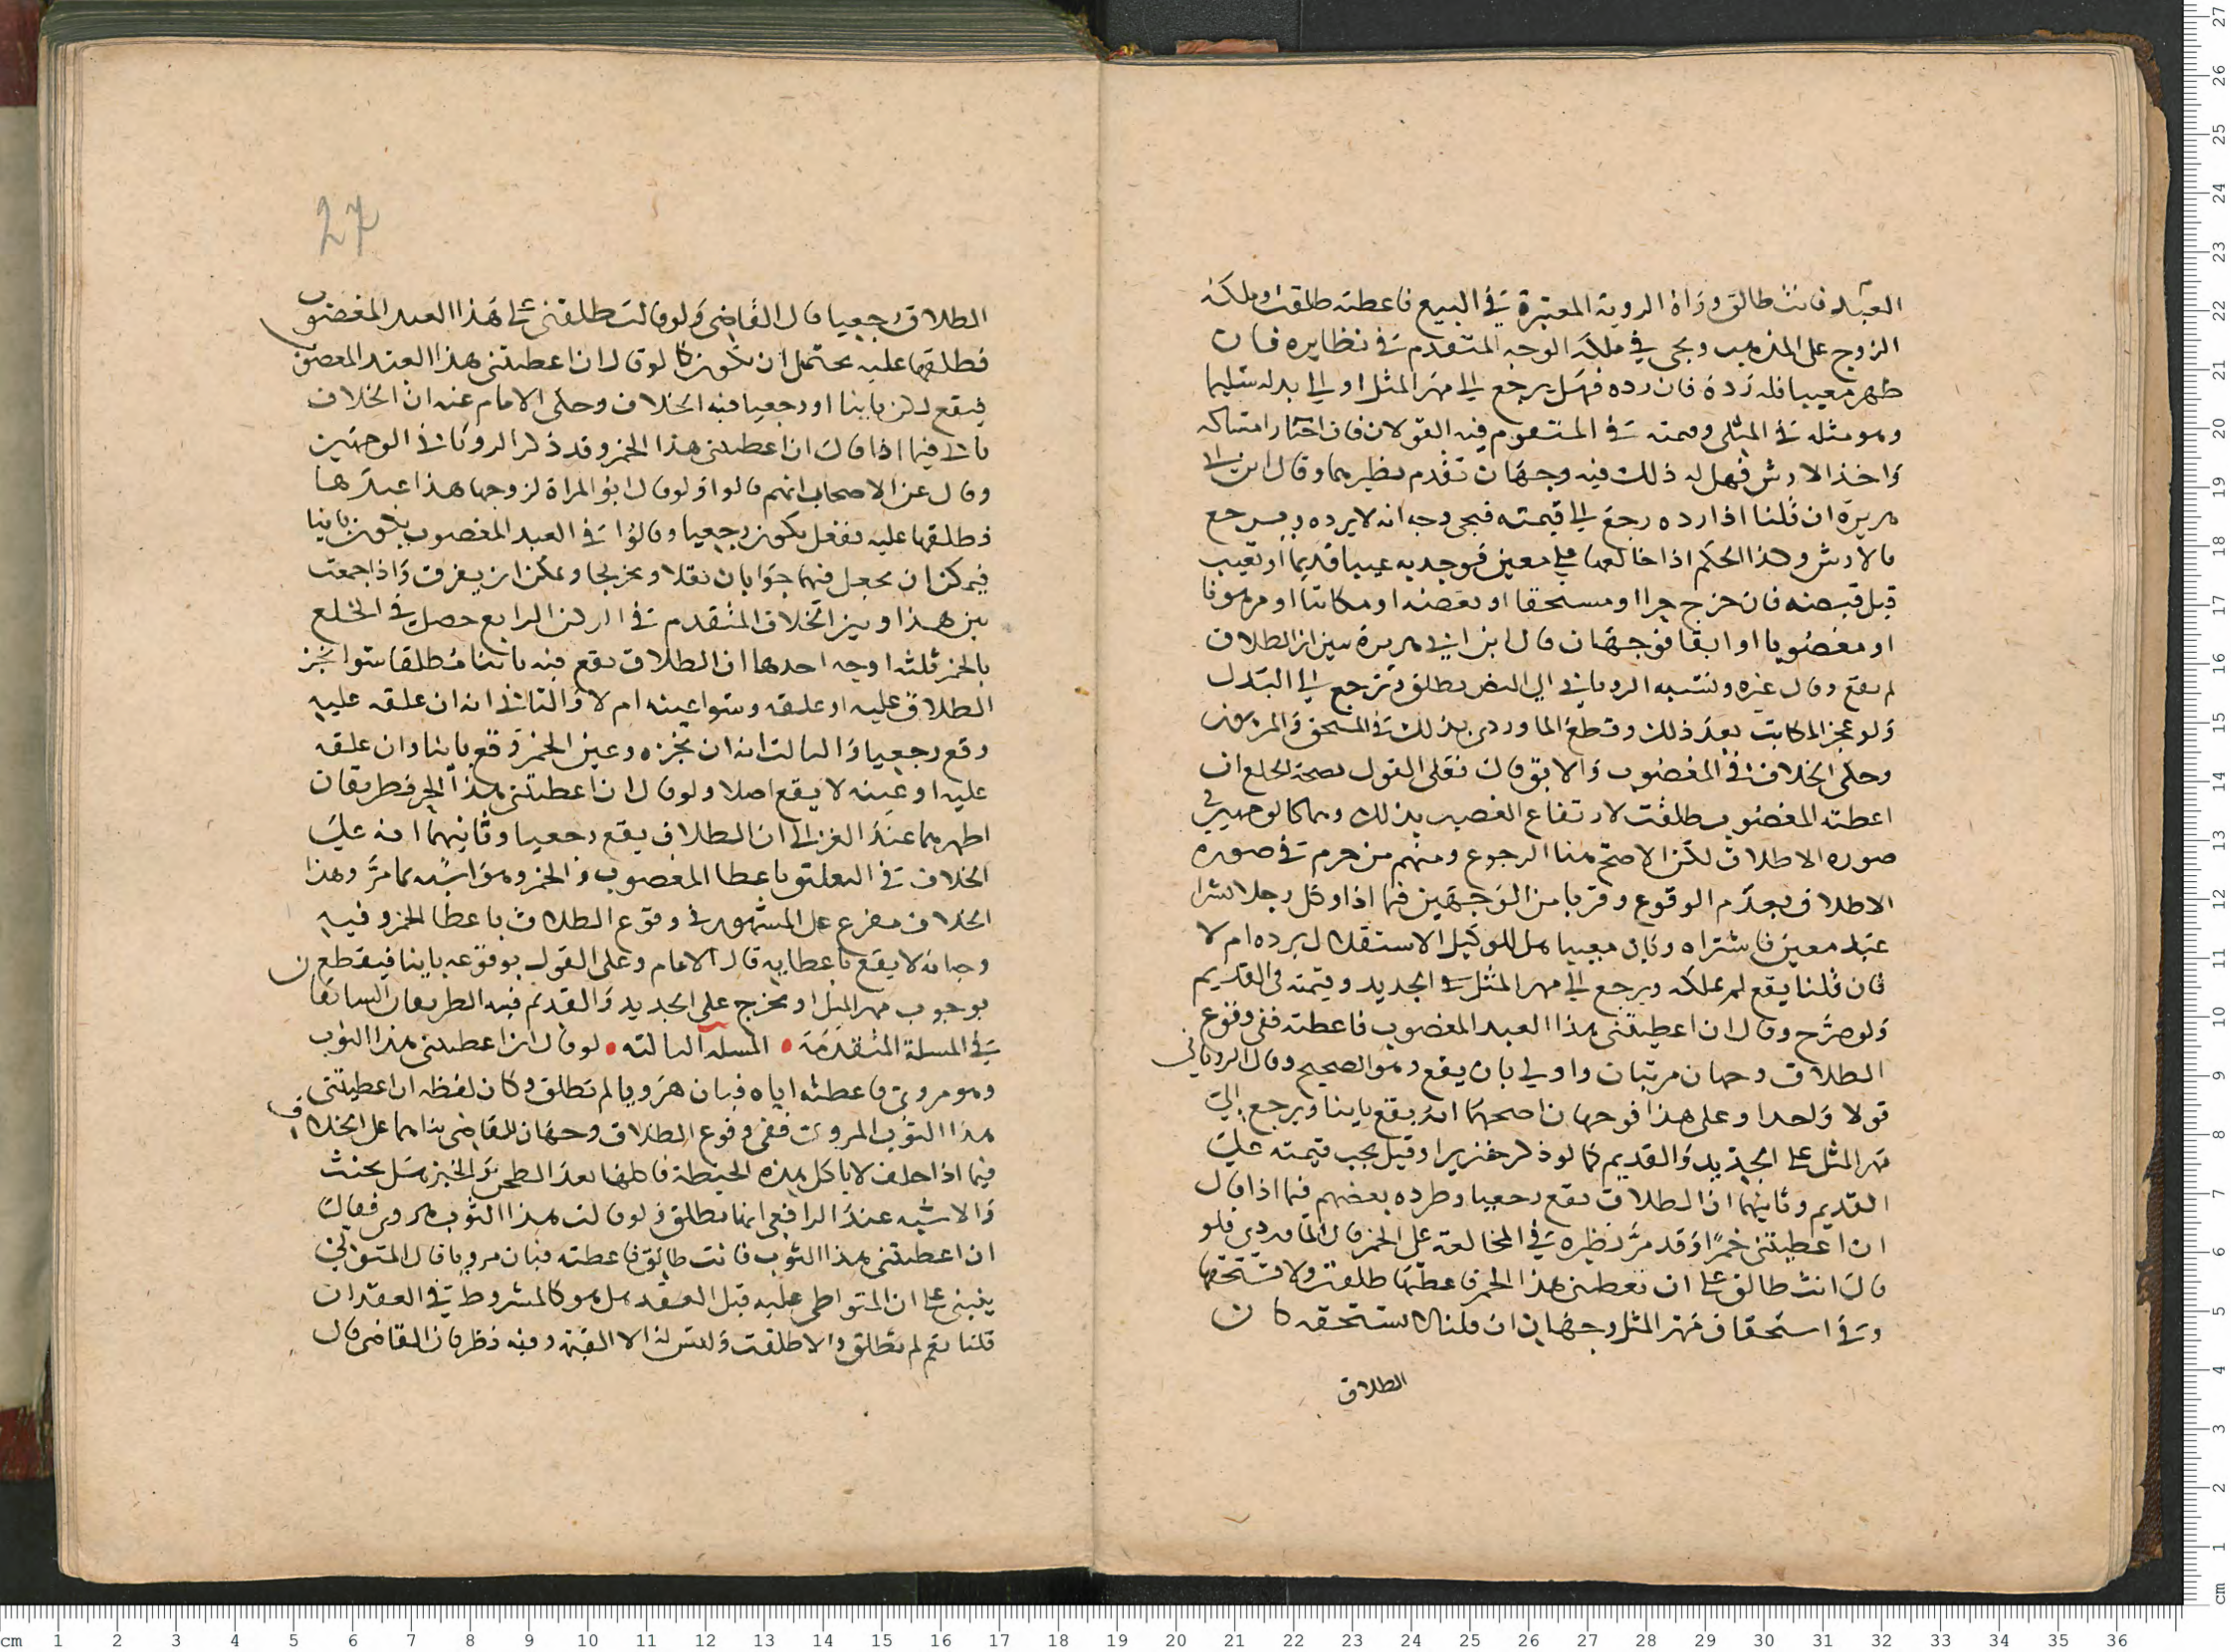 العبد فانت طالق وراه الروية المعتبرة في البيع فاعطته طلقت وملكه
الزوج على المذهب ويجى في ملكه الوجه المتقدم في نظايره فان
ظهر معيبا فله رده فان رده فهل يرجع الي مهر المثل او الي بدله سليما
وهو مثله في المثلى وقيمته في المتقوم فيه القولان فان اختار امساكه
واخذ الارش فهل له ذلك فيه وجهان تقدم نظيرهما وقال ابن ابي
هريرة ان قلنا اذا رده رجع الي قيمته فيجى وجه انه لا يرده ويرجع
بالارش وهذا الحكم اذا خالعها على معين فوجد به عيبا قديما او تعيب
قبل قبضه فان خرج حرا او مستحقا او بعضه او مكاتبا او مرهونا
او مغصوبا او ابقا فوجهان قال ابن ابي هريرة يبين ان الطلاق
لم يقع وقال غيره ونسبه الروياني الي النص يطلق وترجع الي البدل
ولو عجز المكاتب بعد ذلك وقطع الماوردي بذلك في المستحق والمرهون
وحكى الخلاف في المغصوب والابق قال فعلى القول بصحة الخلع ان
اعطته المغصوب طلقت لارتفاع الغصب بذلك وهما كالوجهين في
صورة الاطلاق لكن الاصح هنا الرجوع ومنهم من جزم في صورة
الاطلاق بعدم الوقوع وقربا من الوجهين فيما اذا وكل رجلا بشرا
عبد معين فاشتراه وبان معيبا هل للوكيل الاستقلال برده ام لا
فان قلنا يقع لم يملكه ويرجع الي مهر المثل في الجديد وقيمته في القديم
ولو صرح وقال ان اعطيتني هذا العبد المغصوب فاعطته ففي وقوع
الطلاق وجهان مرتبان واولي بان يقع وهو الصحيح وقال الروياني
قولا واحدا وعلى هذا فوجهان اصحهما انه يقع باينا ويرجع الي
مهر المثل على الجديد والقديم كما لو ذكر خنزيرا وقيل يجب قيمته على
القديم وثانيهما ان الطلاق يقع رجعيا وطرده بعضهم فيما اذا قال
ان اعطيتني خمرا وقد مر نظيره في المخالعة على الخمر قال الماوردي فلو
قال انت طالق على ان تعطيني هذا الخمر فاعطتها طلقت ولا يستحقها
وفي استحقاق مهر المثل وجهان ان قلنا لا يستحقه كان
الطلاق
27
الطلاق رجعيا قال القاضي ولو قالت طلقني على هذا العبد المغصوب
فطلقها عليه يحتمل ان يكون كما لو قال ان اعطيتني هذا العبد المغصوب
فيقع لكن باينا او رجعيا فيه الخلاف وحكى الامام عنه ان الخلاف
ياتي فيما اذا قال ان اعطيتني هذا الخمر وقد ذكر الروياني الوجهين
وقال عن الاصحاب انهم قالوا ولو قال ابو المراة لزوجها هذا عبدها
فطلقها عليه ففعل يكون رجعيا وقالوا في العبد المغصوب يكون باينا
فيمكن ان يجعل فيهما جوابان نقلا وتخريجا ويمكن ان يفرق واذا جمعت
بين هذا وبين الخلاف المتقدم في الركن الرابع حصل في الخلع
بالخمر ثلثه اوجه احدها ان الطلاق يقع فيه باينا مطلقا سوا نجز
الطلاق عليه او علقه وسوا عينه ام لا والثاني انه ان علقه عليه
وقع رجعيا والثالث انه ان نجزه وعين الخمر وقع باينا وان علقه
عليه او عينه لا يقع اصلا ولو قال ان اعطيتني هذا الحر فطريقان
اظهرهما عند الغزالي ان الطلاق يقع رجعيا وثانيهما انه على
الخلاف في التعليق باعطا المغصوب والخمر وهو اشبه بما مر وهذا
الخلاف مفرع على المشهور في وقوع الطلاق باعطا الخمر وفيه
وجه انه لا يقع باعطايه قال الامام وعلى القول بوقوعه باينا فيقطع
بوجوب مهر المثل او يخرج على الجديد والقديم فيه الطريقان السابقان
في المسلة المتقدمة • المسله الثالثه • لو قال ان اعطيتني هذا الثوب
وهو مروي فاعطته اياه فبان هرويا لم تطلق وكان لفظه ان اعطيتني
هذا الثوب المروي ففي وقوع الطلاق وجهان للقاضي بناهما على الخلاف
فيما اذا حلف لا ياكل هذه الحنطة فاكلها بعد الطحن والخبز هل يحنث
والاشبه عند الرافعي انها تطلق ولو قالت هذا الثوب مروي فقال
ان اعطيتني هذا الثوب فانت طالق فاعطته فبان هرويا قال المتولي
ينبني على ان المتواطى عليه قبل العقد هل هو كالمشروط في العقد ان
قلنا نعم لم تطلق والا طلقت وليس له الا البينه وفيه نظر فان القاضي قال